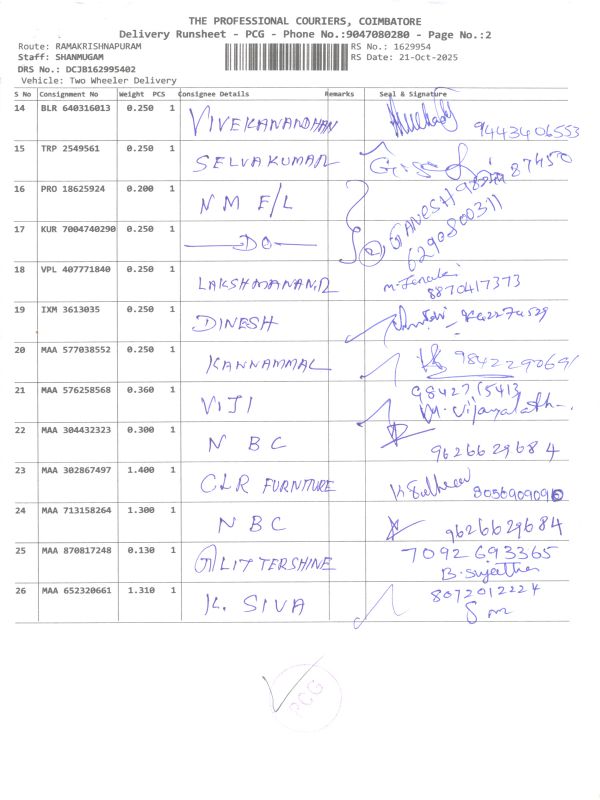 THE PROFESSIONAL COURIERS, COIMBATORE
Delivery Runsheet - PCG - Phone No.:9047080280 - Page No.:2
Route: RAMAKRISHNAPURAM RS No.: 1629954
Staff: SHANMUGAM RS Date: 21-Oct-2025
DRS No.: DCJB162995402
Vehicle: Two Wheeler Delivery
S No Consignment No Weight PCS Consignee Details Remarks Seal & Signature
14 BLR 640316013 0.250 1 VIVEKANANDHAN 9443406553
15 TRP 2549561 0.250 1 SELVAKUMAR 87450
16 PRO 18625924 0.200 1 N M E/L GANESH
17 KUR 7004740290 0.250 1 —DO— 6290800311
18 VPL 407771840 0.250 1 LAKSHMANAN.R M-Jenaki 8870417373
19 IXM 3613035 0.250 1 DINESH
20 MAA 577038552 0.250 1 KANNAMMAL 9842229069
21 MAA 576258568 0.360 1 VIJI 9842715413
M. Vijayalath
22 MAA 304432323 0.300 1 N B C 9626629684
23 MAA 302867497 1.400 1 CLR FURNITURE 8056909090
24 MAA 713158264 1.300 1 N B C 9626629684
25 MAA 870817248 0.130 1 GLITTERSHINE 7092693365
B. Sujeetha
26 MAA 652320661 1.310 1 K. SIVA 8072012224
PCG